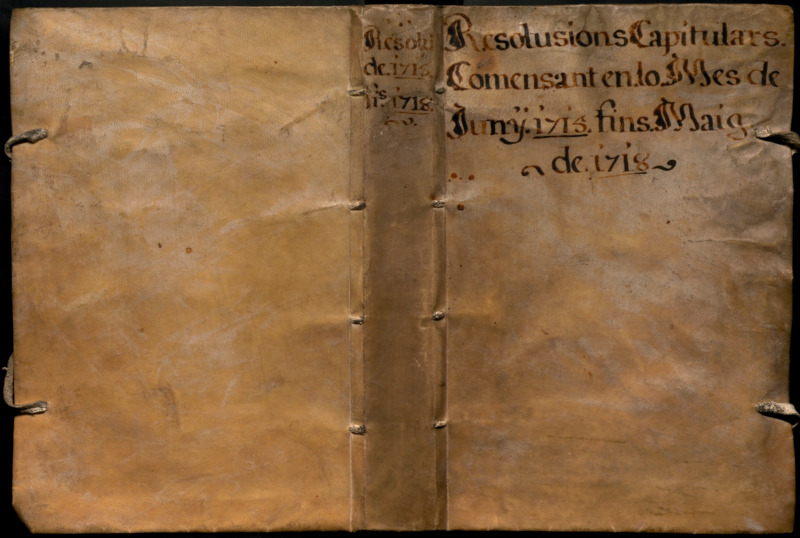 Resolu
de.1713.
fis.1718.
Resolusions Capitulars.
Comensant en.lo.Mes de
Juny.1713.fins.Maig
de.1718